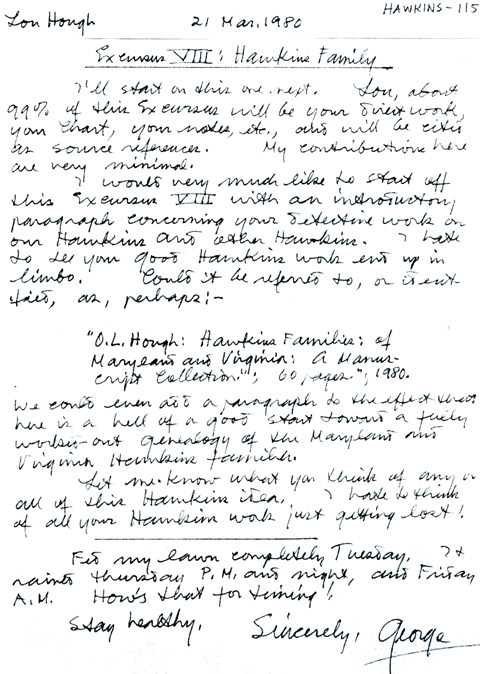 HAWKINS-115
Lon Hough 21 Mar. 1980
Excursus VIII: Hawkins Family
I'll start on this one next. Lou, about
99% of this Excursus will be your direct work,
your chart, your notes, etc., and will be cited
as source references. My contributions here
are very minimal.
I would very much like to start off
this Excursus VIII with an introductory
paragraph concerning your detective work on
our Hawkins and other Hawkins. I hate
to see you good Hawkins work end up in
limbo. Could it be referred to, or ident-
ified, as, perhaps:-
"O.L. Hough: Hawkins Families: of
Maryland and Virginia: A Manus-
cript Collection"; 60 pages", 1980.
We could even add a paragraph to the effect that
here is a hell of a good start toward a fully
worked-out genealogy of the Maryland and
Virginia Hawkins families.
Let me know what you think of any or
all of this Hawkins idea. I hate to think
of all your Hawkins work just getting lost!
Fed my lawn completely Tuesday. It
rained Thursday P.M. and night, and Friday
A.M. How's that for timing!
Stay healthy,
Sincerely, George